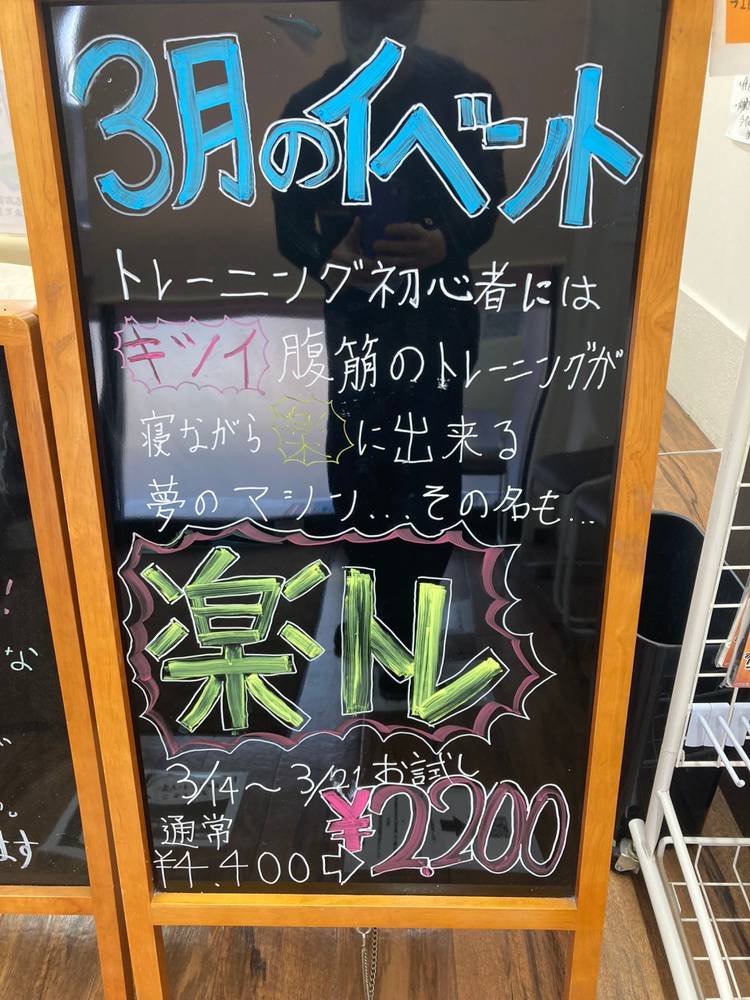 3月のイベント
トレーニング初心者には
キツイ腹筋のトレーニングが
寝ながら楽に出来る
夢のマシン...その名も...
楽トレ
3/14〜3/21 お試し
通常
¥4.400⇨¥2.200
！
な
ます